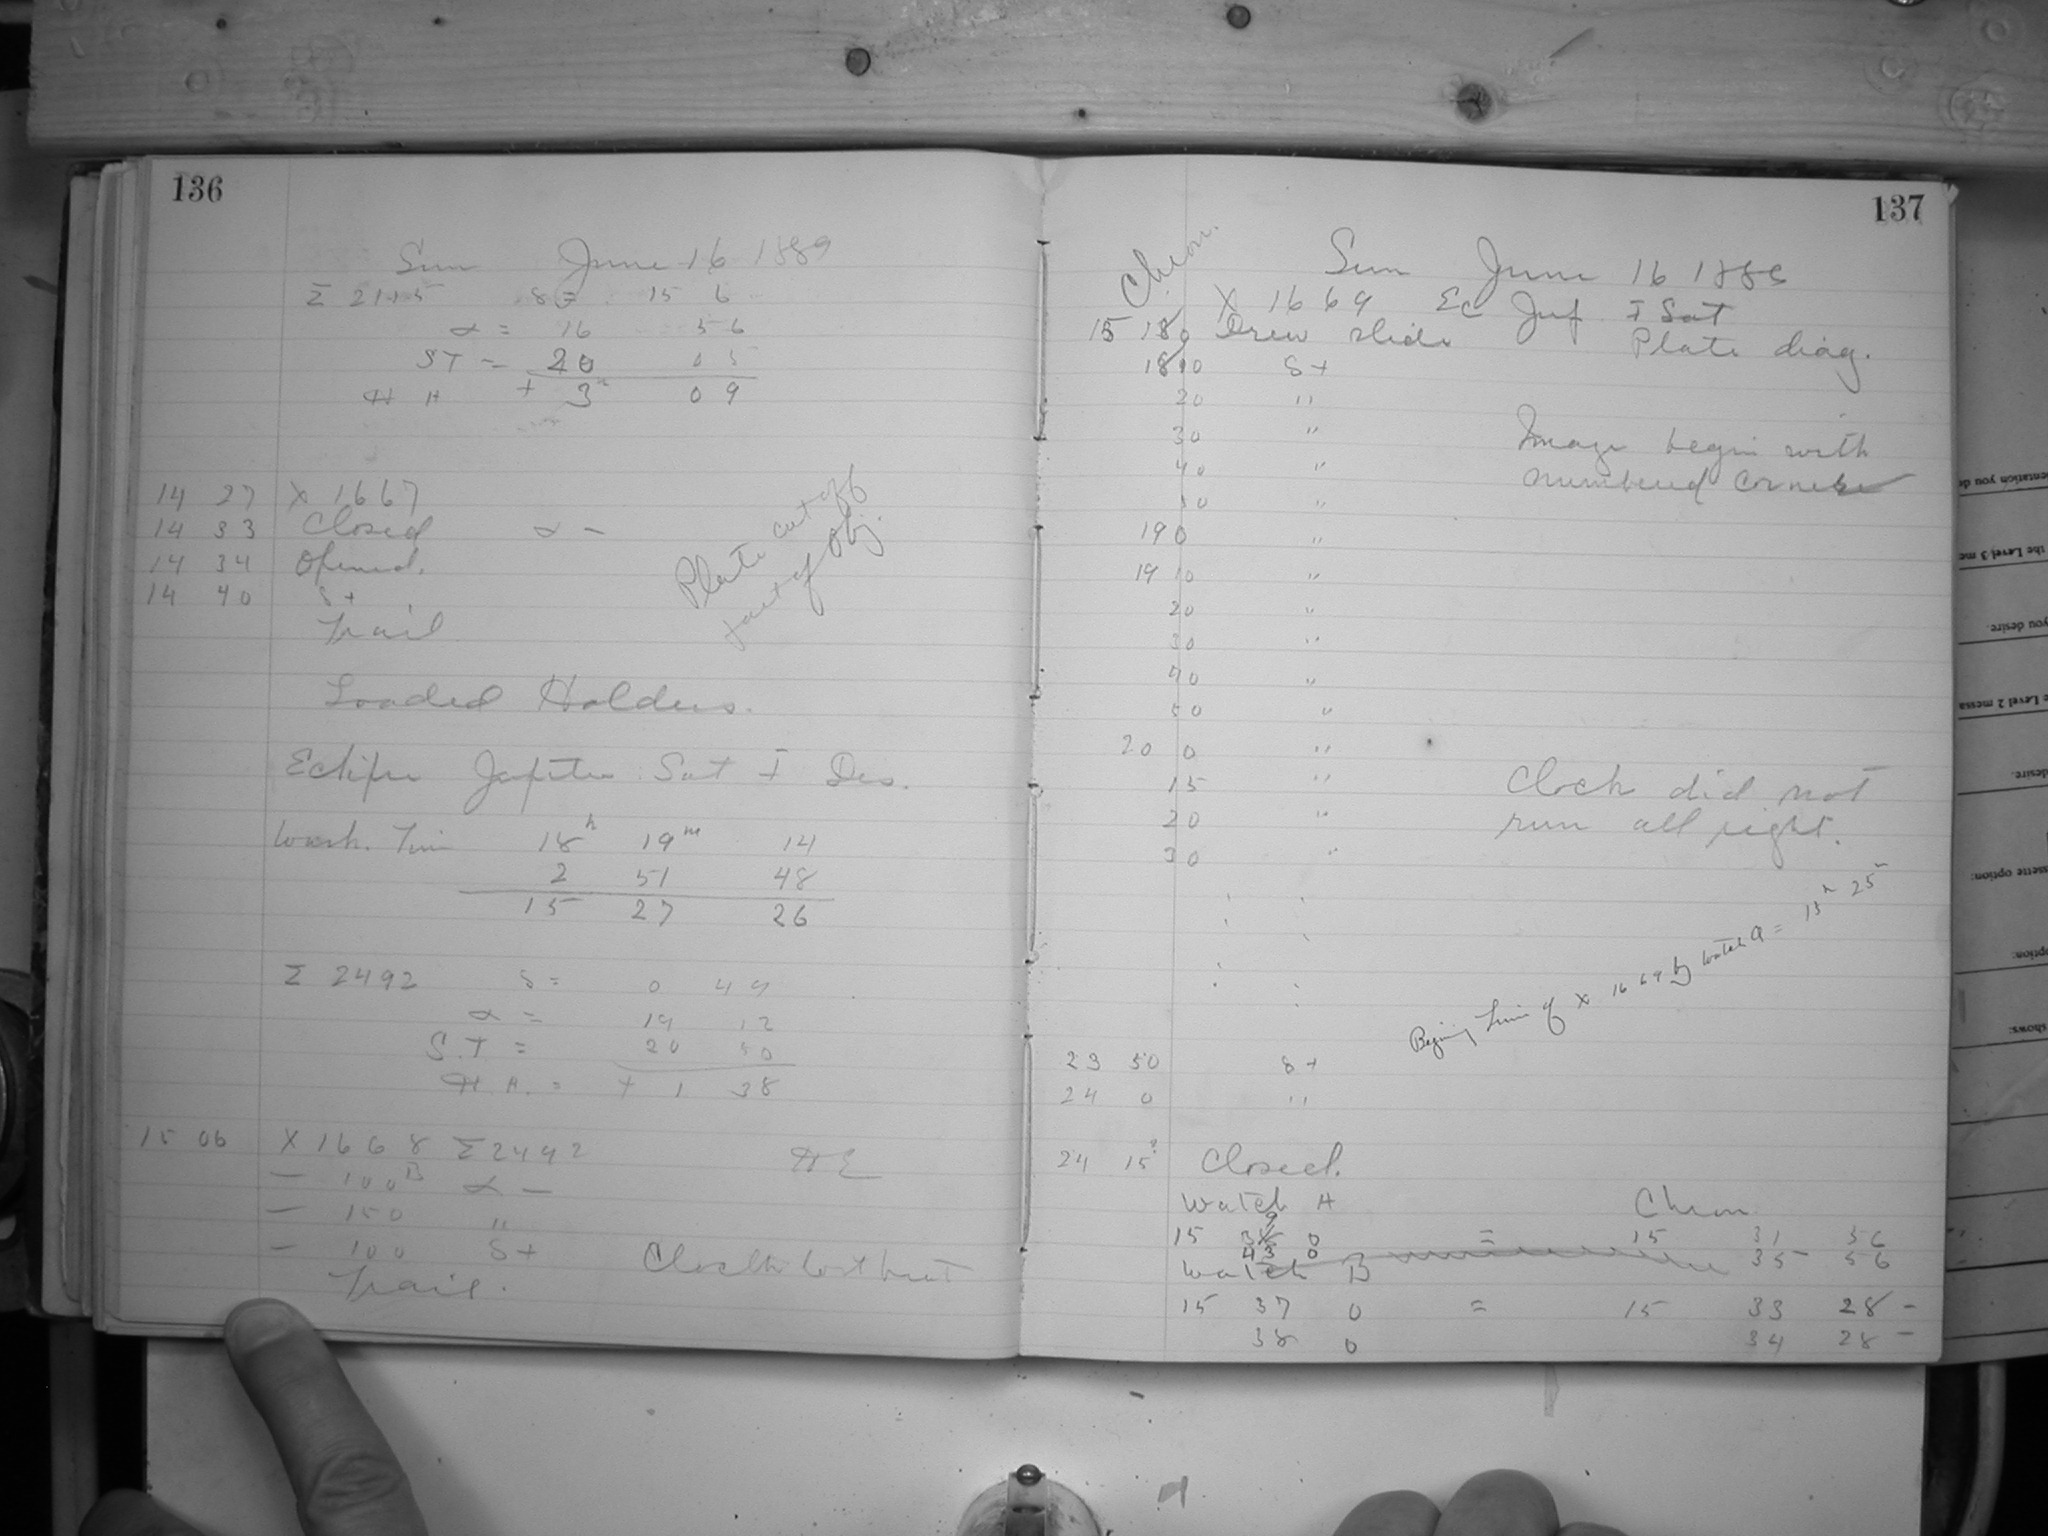 136
Sun June 16 1889
Σ 2115 δ = 15 6
α = 16 56
ST = 20 05
H A + 3h 09
14 27 X 1667
14 33 Closed α -
14 34 Opened.
14 40 δ +
Trail
Plate cut off
part of Obj.
Loaded Holders.
Eclipse Jupiter Sat I Dis.
Wash. Time 18h 19m 14
2 51 48
15 27 26
Σ 2492 δ = 0 49
α = 19 12
S.T = 20 50
H. A. = + 1 38
15 06 X 1668 Σ 2492
— 100B α —
— 150 "
— 100 δ +
Trail.
137
Chron.
Sun June 16 1889
X 1669 Ec Jup I Sat
15 18 0 Drew slide Plate diag.
18 10 δ +
20 "
30 "
40 "
50 "
Image begin with
numbered corner
19 0 "
19 10 "
20 "
30 "
40 "
50 "
20 0 "
15 "
20 "
30 "
Clock did not
run all right.
Begining Time of X 1669 by Watch A = 15h 25m
23 50 δ +
24 0 "
24 15? Closed.
Watch A Chron
15 39 0 = 15 31 56
43 0 35 56
Watch B
15 37 0 = 15 33 28 -
38 0 34 28 -